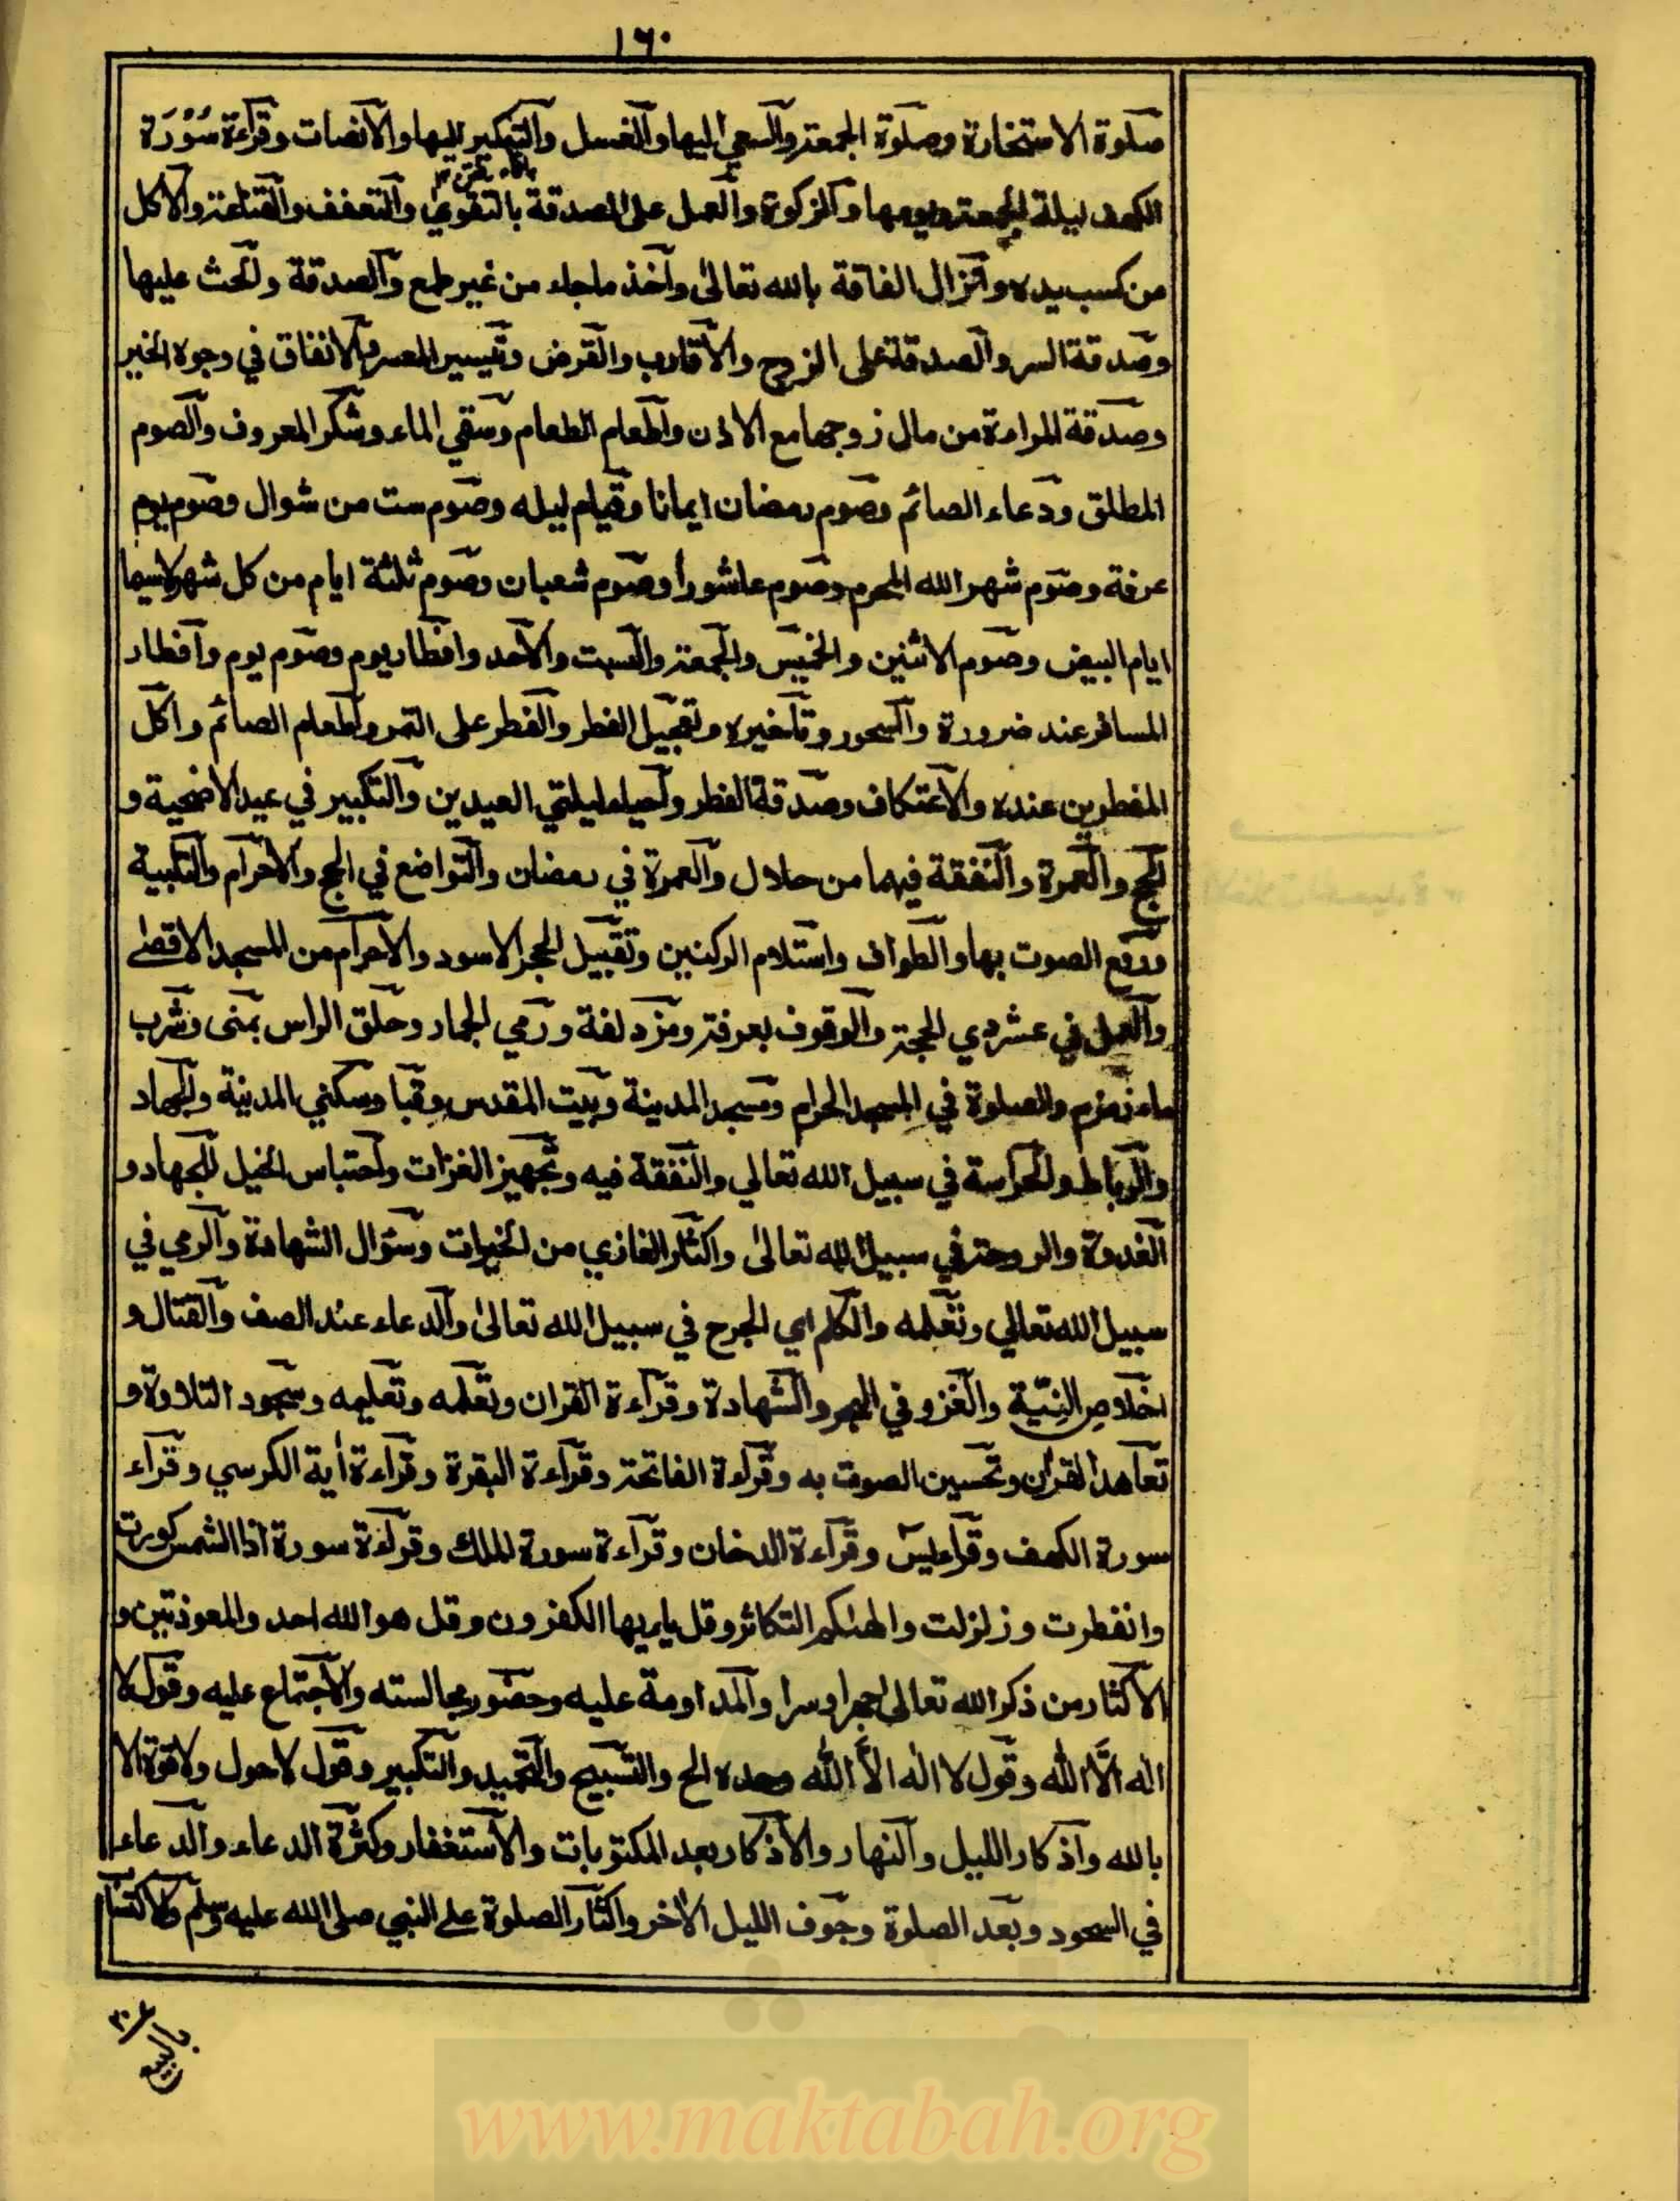 ١٦٠
صلوة الاستخارة وصلوة الجمعة والسعي اليها والغسل والتبكير اليها والانصات وقرآءة سُوْرَة
الكهف ليلة الجمعة ويومها والزكوة والعمل على الصدقة بالتقوي والتعفف والقناعة والاكل
من كسب يده وانزال الفاقة بالله تعالى وآخذ ما جاء من غير طمع والصدقة والحث عليها
وصدقة السر والصدقة على الزوج والاقارب والقرض وتيسير المعسر والانفاق في وجوه الخير
وصدقة المراءة من مال زوجها مع الاذن واطعام الطعام وسقي الماء وشكر المعروف والصوم
المطلق ودعاء الصائم وصوم رمضان ايمانا وقيام ليله وصوم ست من شوال وصوم يوم
عرفة وصوم شهر الله المحرم وصوم عاشورأ وصوم شعبان وصوم ثلثة ايام من كل شهر لاسيما
ايام البيض وصوم الاثنين والخميس والجمعة والسبت والاحد وافطار يوم وصوم يوم وافطار
المسافر عند ضرورة والسحور وتاخيره وتعجيل الفطر والفطر على التمر واطعام الصائم واكل
المفطرين عنده والاعتكاف وصدقة الفطر واحياء ليلتي العيدين والتكبير في عيد الاضحية و
الحج والعمرة والنفقة فيهما من حلال والعمرة في رمضان والتواضع في الحج والاحرام والتلبية
ورفع الصوت بها والطواف واستلام الركنين وتقبيل الحجر الاسود والاحرام من المسجد الاقصٰى
والعمل في عشر ذي الحجة والوقوف بعرفة ومزدلفة ورمي الجمار وحلق الراس بمنى وشرب
ماء زمزم والصلوة في المسجد الحرام ومسجد المدينة وبيت المقدس وقبا وسكني المدينة والجهاد
والرباط والحراسة في سبيل الله تعالي والنفقة فيه وتجهيز الغزات واحتباس الخيل للجهاد و
الغدوة والروحة في سبيل الله تعالى واكثار الغازي من الخيرات وسؤال الشهادة والرمي في
سبيل الله تعالي وتعلمه والكلم اي الجرح في سبيل الله تعالى والدعاء عند الصف والقتال و
اخلاص النيّة والغزو في البحر والشهادة وقرآءة القران وتعلمه وتعليمه وسجود التلاوة و
تعاهد القران وتحسين الصوت به وقرآءة الفاتحة وقرآءة البقرة وقرآءة أية الكرسي وقرآء
سورة الكهف وقرآء يس وقرآءة الدخان وقرآءة سورة الملك وقرآءة سورة اذا الشمس كورت
وانفطرت وزلزلت والهٰىكم التكاثر وقل يايها الكفرون وقل هو الله احد والمعوذتين و
الاكثار من ذكر الله تعالى جهرا وسرا والمداومة عليه وحضور مجالسته والاجتماع عليه وقول لا
اله الّا الله وقول لا اله الاّ الله وحده الخ والتسبيح والتحميد والتكبير وقول لاحول ولاقوة الا
بالله وآذكار الليل والنهار والاذكار بعد المكتوبات والاستغفار وكثرة الدعاء والدعاء
في السجود وبعد الصلوة وجوف الليل الاخر واكثار الصلوة على النبي صلى الله عليه وسلم
www.maktabah.org